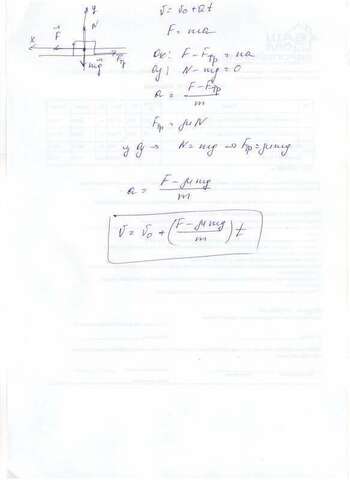 y
x F⃗ N
Fтр
mg⃗
v = v₀ + at
F = ma
Ox: F - Fтр = ma
Oy: N - mg = 0
a = (F - Fтр)/m
Fтр = μN
из Oy → N = mg → Fтр = μmg
a = (F - μmg)/m
v = v₀ + ((F - μmg)/m) t